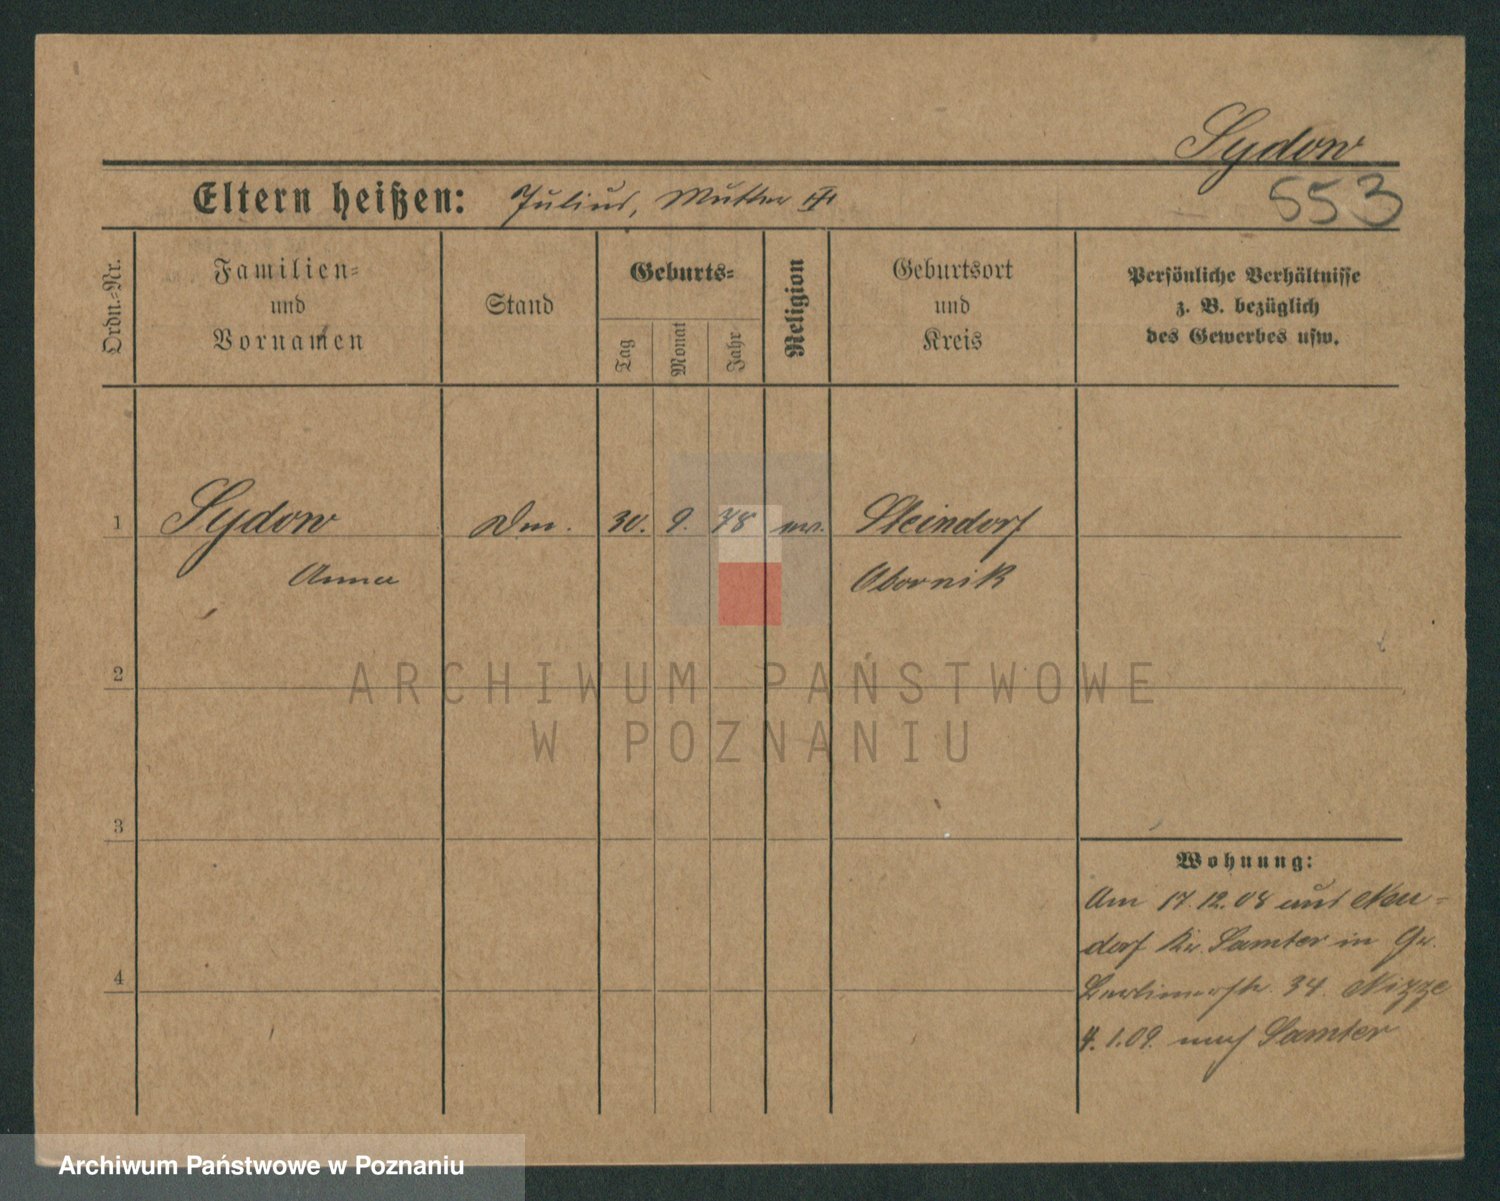 Sydow
553
Eltern heißen: Julius, Mutter
Ordn.-Nr.
Familien-
und
Vornamen
Stand
Geburts-
Tag
Monat
Jahr
Religion
Geburtsort
und
Kreis
Persönliche Verhältnisse
z. B. bezüglich
des Gewerbes usw.
1 Sydow 30. 9. 78 ev. Steindorf
Anna Obornik
2
ARCHIWUM PAŃSTWOWE
W POZNANIU
3
Wohnung:
Am 17.12.08 aus Neu-
dorf Kr. Samter in
4
Berlinerstr. 34
4.1.09. nach Samter
Archiwum Państwowe w Poznaniu